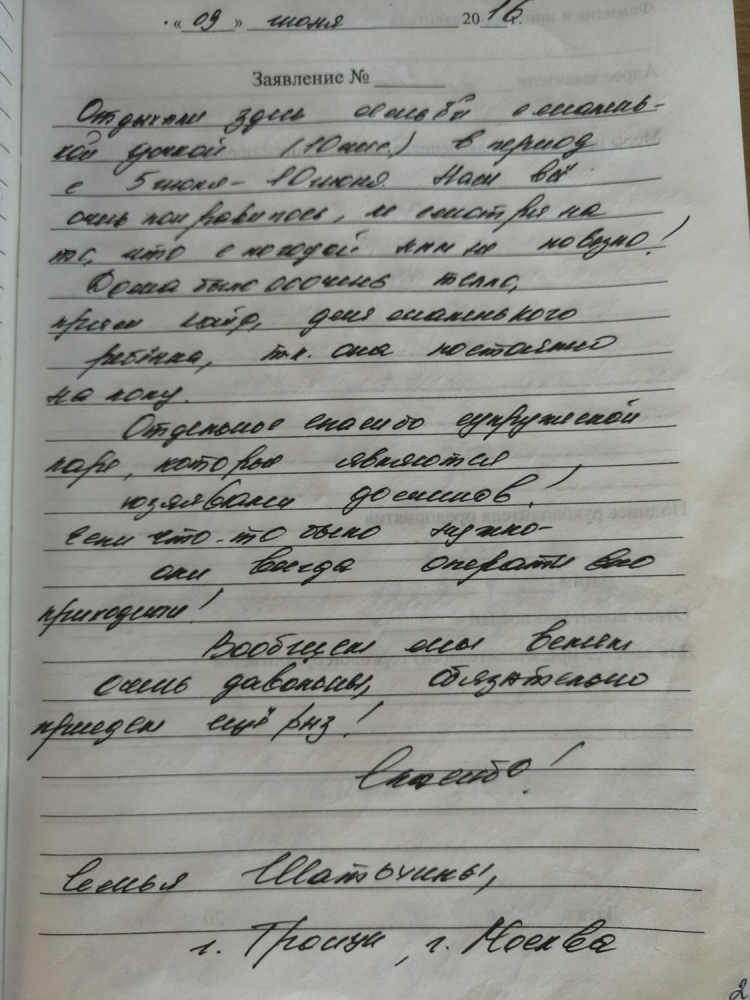 « 09 » июня 2016 г.
Заявление №
Отдыхали здесь семьёй с малень-
кой дочкой (10 мес.) в период
с 5 июня - 10 июня. Нам всё
очень понравилось, не смотря на
то, что с погодой нам не повезло!
Дома было очень тепло,
прям кайф, для маленького
ребёнка, т.к. она постоянно
на полу.
Отдельное спасибо супружеской
паре, которые являются
хозяевами домиков!
Если что-то было нужно-
они всегда оперативно
приходили!
Вообщем мы всем
очень давольны, обязательно
приедем ещё раз!
Спасибо!
Семья
г. Троицк, г. Москва